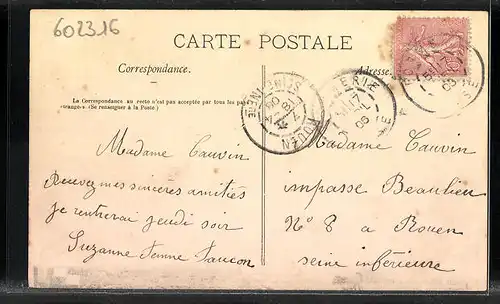 602316
CARTE POSTALE
Correspondance.
Adresse.
La Correspondance au recto n'est pas acceptée par tous les pays
(Se renseigner à la Poste)
ROUEN
Madame Cauvin
Recevez mes sinceres amitiés
je rentrerai jeudi soir
Suzanne
Madame Cauvin
impasse Beaulieu
N° 8 a Rouen
seine inférieure